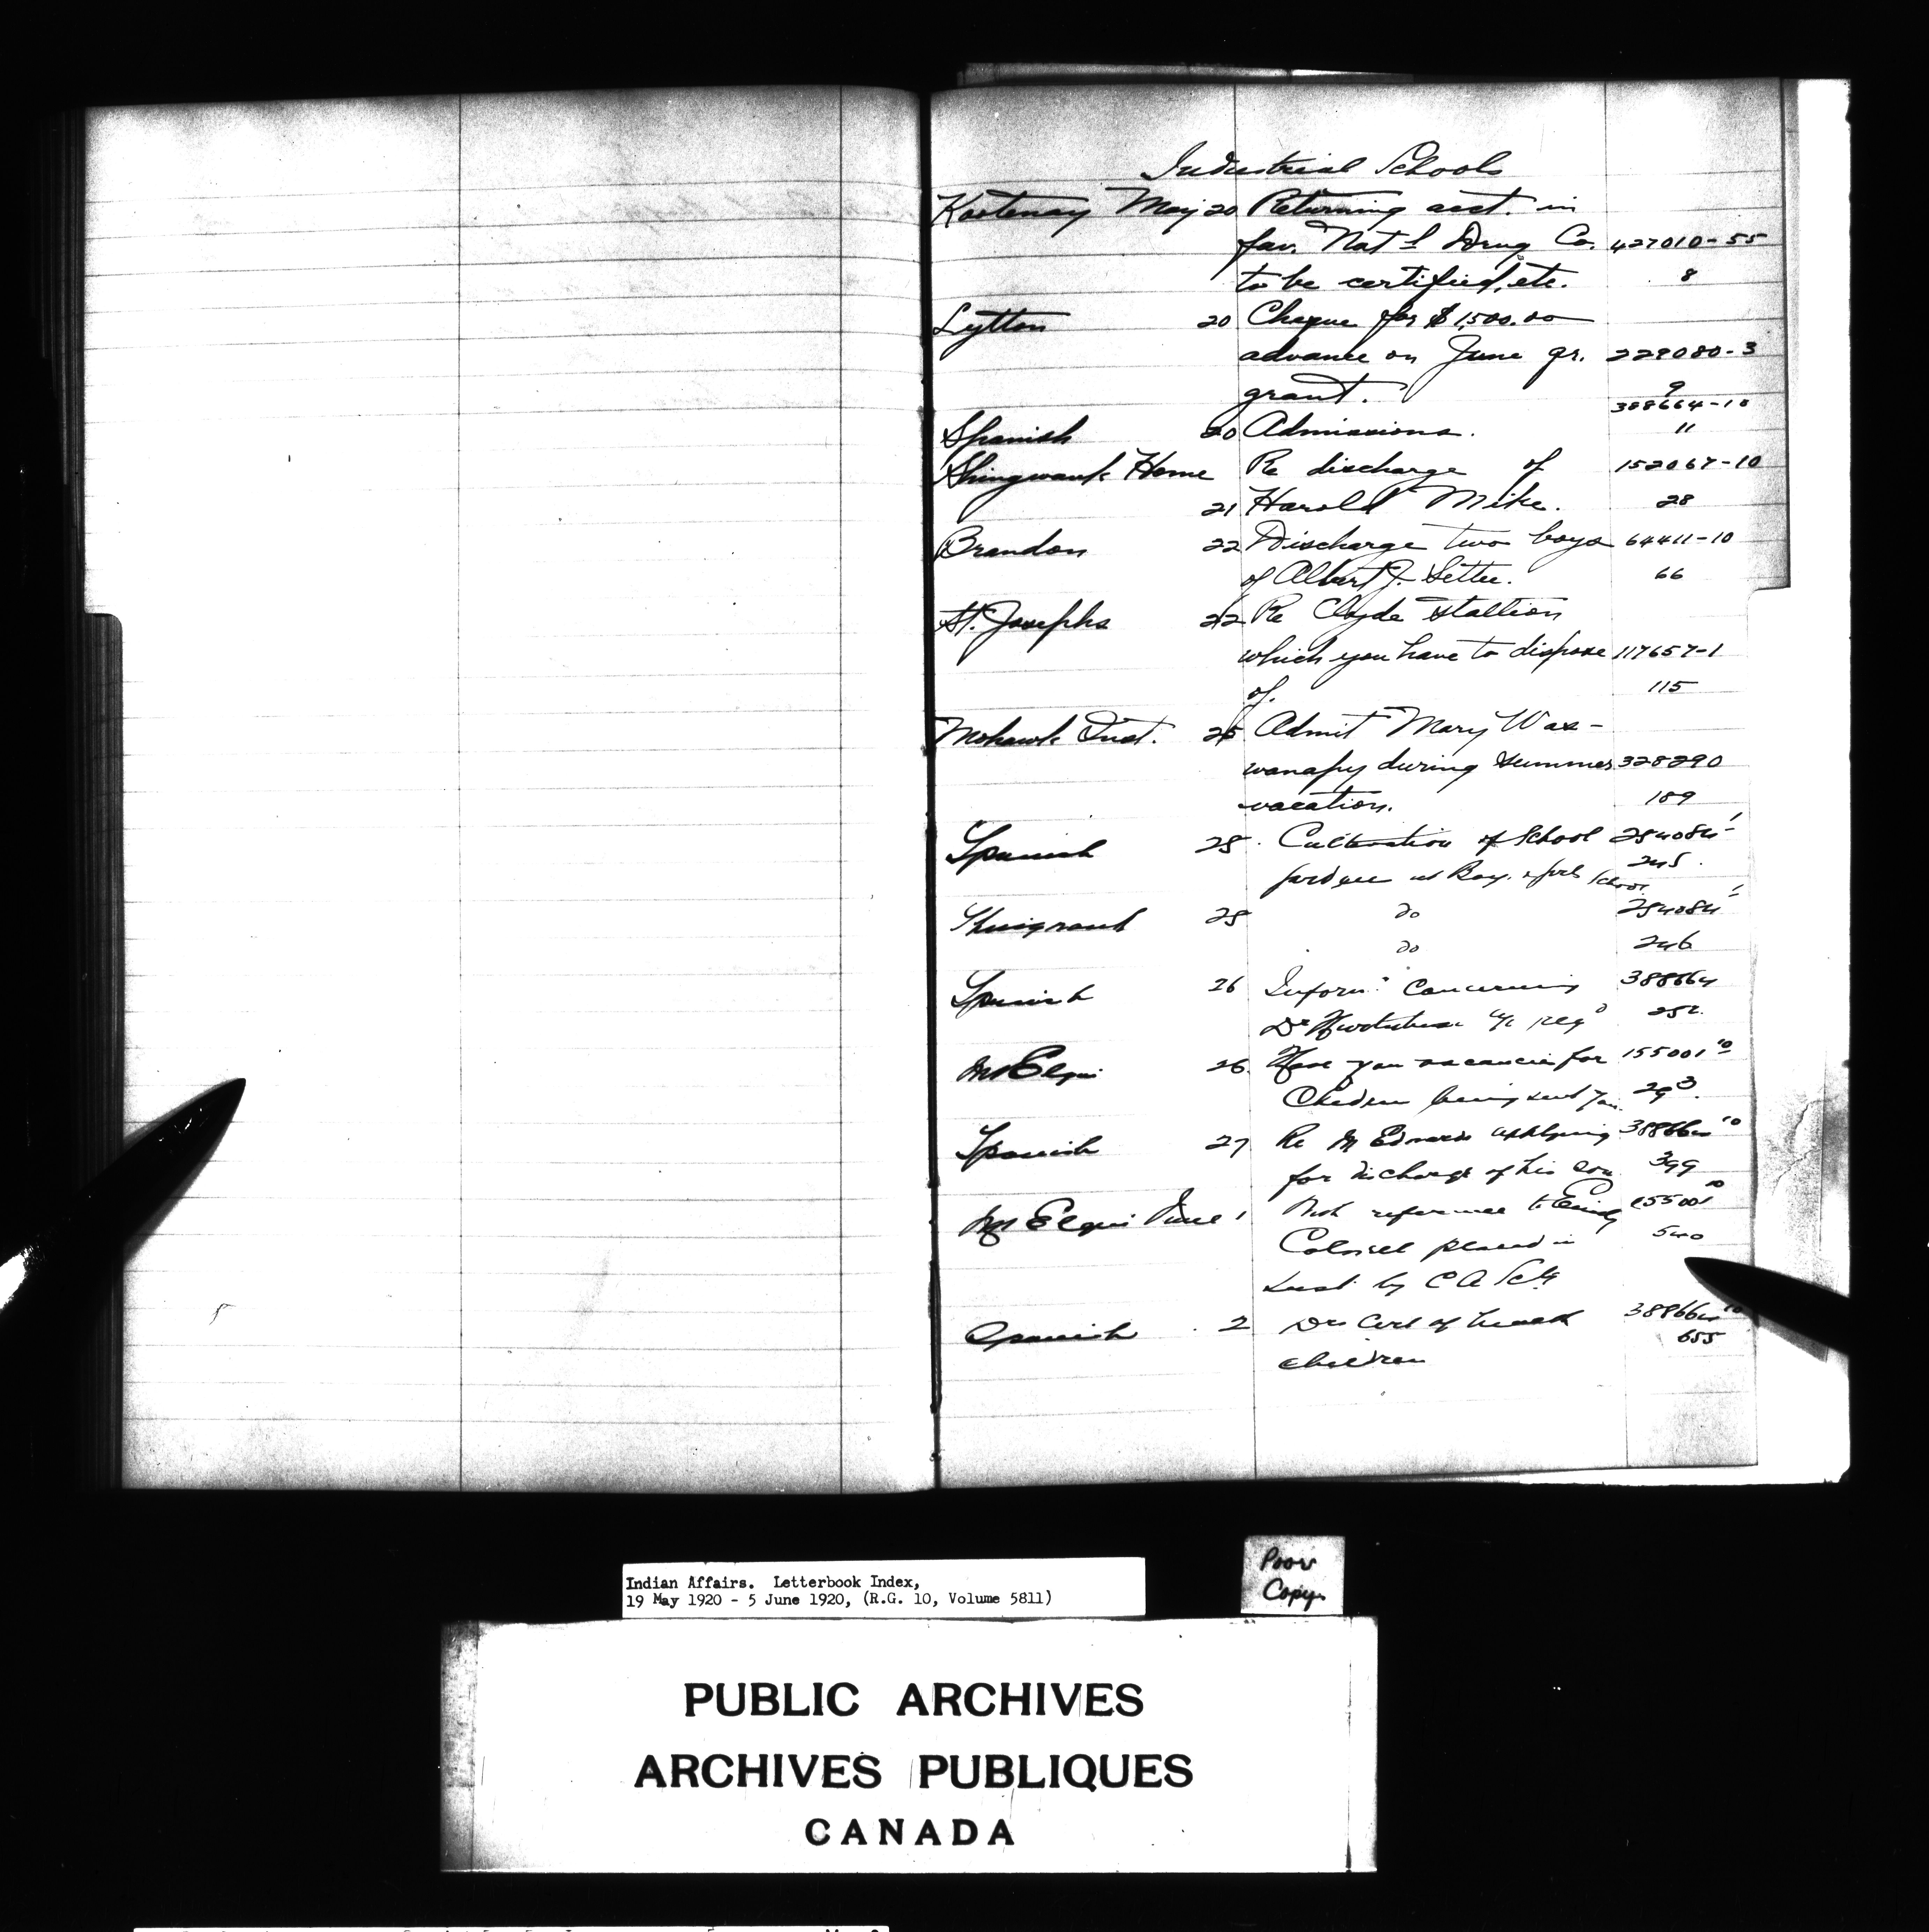 Industrial Schools
Kootenay May 20 Returning acct. in
fav. Nat'l Drug Co. 427010-55
to be certified, etc. 8
Lytton 20 Cheque for $1,500.00
advance on June qr. 229080-3
grant. 9
388664-10
Spanish 20 Admissions. 11
Shingwauk Home Re discharge of 152067-10
21 Harold Mike. 28
Brandon 22 Discharge two boys 64411-10
of Albert J. Settee. 66
St. Josephs 22 Re Clyde stallion
which you have to dispose 117657-1
of. 115
Mohawk Inst. 25 Admit Mary Was-
wanapy during summer 328290
vacation. 189
Spanish 25 Cultivation of School 254084-1
245
Shingwauk 25 do 254084-1
do 246
Spanish 26 Inform. Concerning 388664
Dr a/c reqd 252
Mt Elgin 26 Have you vacancies for 155001-10
Children being sent you 293
Spanish 27 Re Edwards applying 388664-10
for discharge of his son 399
Mt Elgin June 1 With reference to Emily 155001-10
placed in 540
Inst by C A
Spanish 2 Drs Cert of health 388664-10
children 655
Indian Affairs. Letterbook Index,
19 May 1920 - 5 June 1920, (R.G. 10, Volume 5811)
Poor
Copy
PUBLIC ARCHIVES
ARCHIVES PUBLIQUES
CANADA